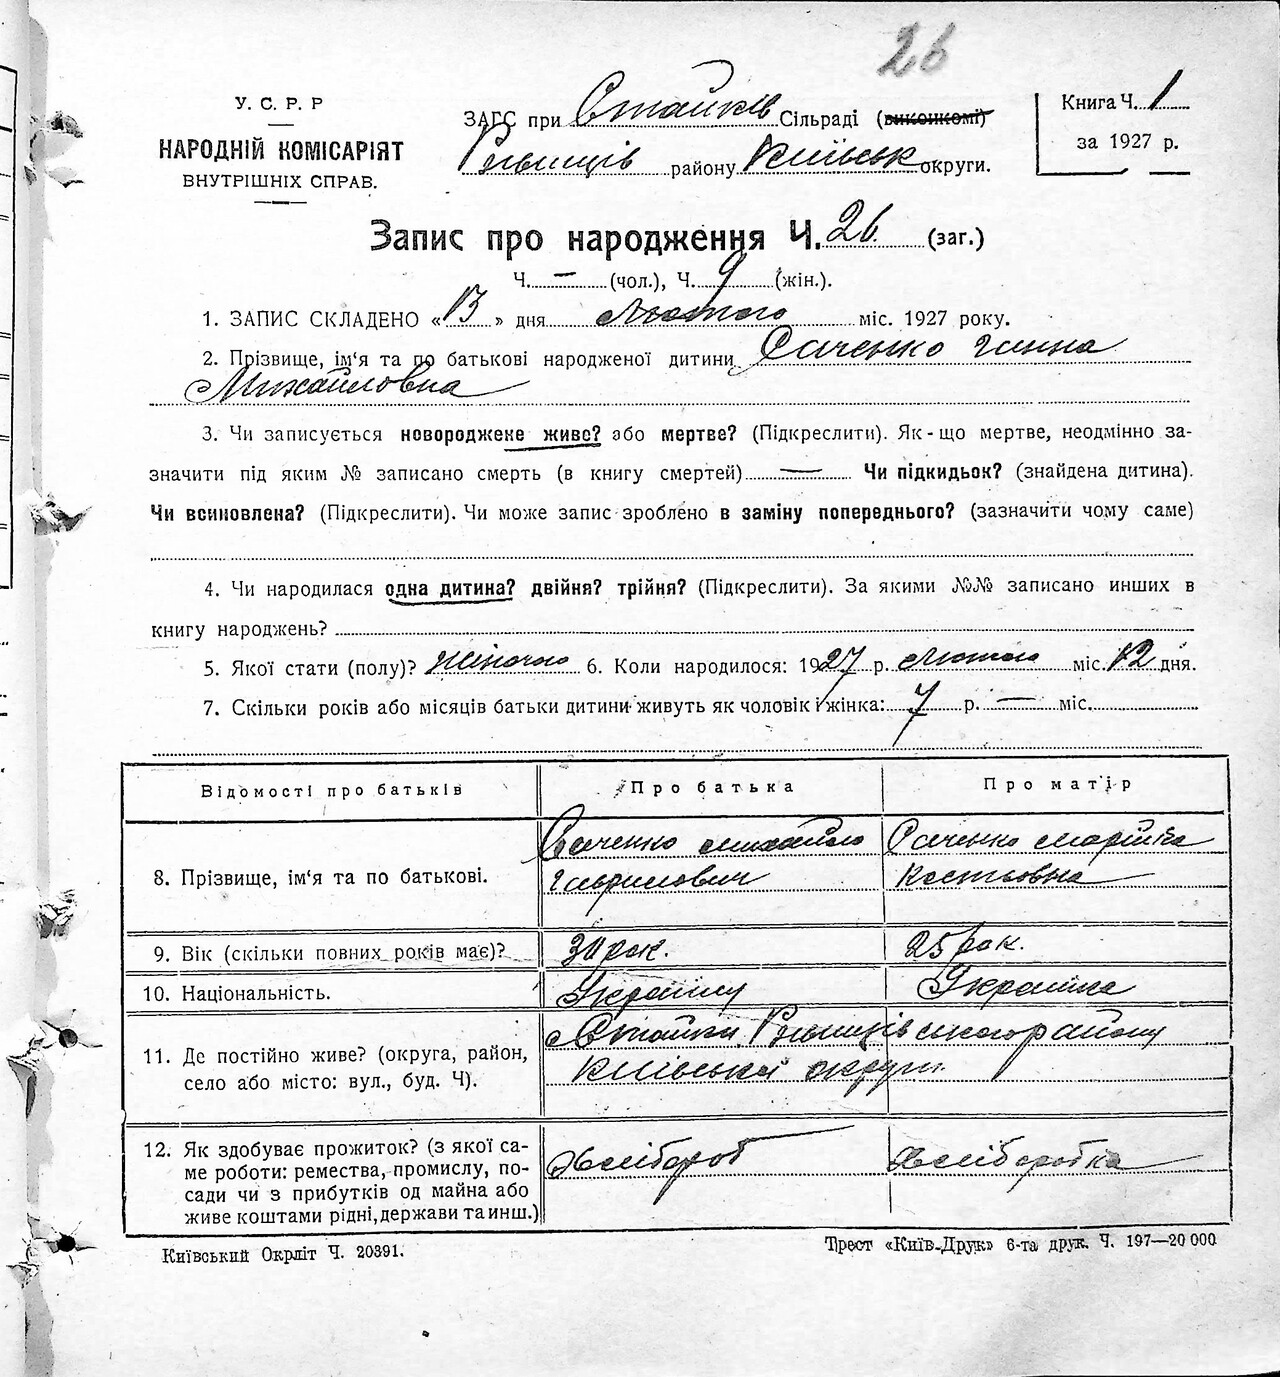 26
У. С. Р. Р
НАРОДНІЙ КОМІСАРІЯТ
ВНУТРІШНІХ СПРАВ.
ЗАГС при Стайків Сільраді (виконкомі)
Ржищів району Київськ округи.
Книга Ч. 1
за 1927 р.
Запис про народження Ч. 26. (заг.)
Ч. — (чол.), Ч. 9 (жін.).
1. ЗАПИС СКЛАДЕНО «13» дня Лютого міс. 1927 року.
2. Прізвище, ім‘я та по батькові народженої дитини Саченко Ганна
Михайловна
3. Чи записується новороджене живе? або мертве? (Підкреслити). Як-що мертве, неодмінно за-
значити під яким № записано смерть (в книгу смертей) — Чи підкидьок? (знайдена дитина).
Чи всиновлена? (Підкреслити). Чи може запис зроблено в заміну попереднього? (зазначити чому саме)
4. Чи народилася одна дитина? двійня? трійня? (Підкреслити). За якими №№ записано инших в
книгу народжень?
5. Якої стати (полу)? Жіночого 6. Коли народилося: 1927 р. Лютого міс. 12 дня.
7. Скільки років або місяців батьки дитини живуть як чоловік і жінка: 7 р. — міс.
Відомості про батьків
Про батька
Про матір
8. Прізвище, ім‘я та по батькові.
Саченко Михайло
Гаврилович
Саченко Марійка
Костьовна
9. Вік (скільки повних років має)?
рок.
25 рок.
10. Національність.
Українець
Українка
11. Де постійно живе? (округа, район,
село або місто: вул., буд. Ч).
Стайки Ржищівського району
Київської округи.
12. Як здобуває прожиток? (з якої са-
ме роботи: ремества, промислу, по-
сади чи з прибутків од майна або
живе коштами рідні, держави та инш.)
Хлібороб
Хліборобка
Київський Окрліт Ч. 20391.
Трест «Київ-Друк» 6-та друк. Ч. 197—20 000